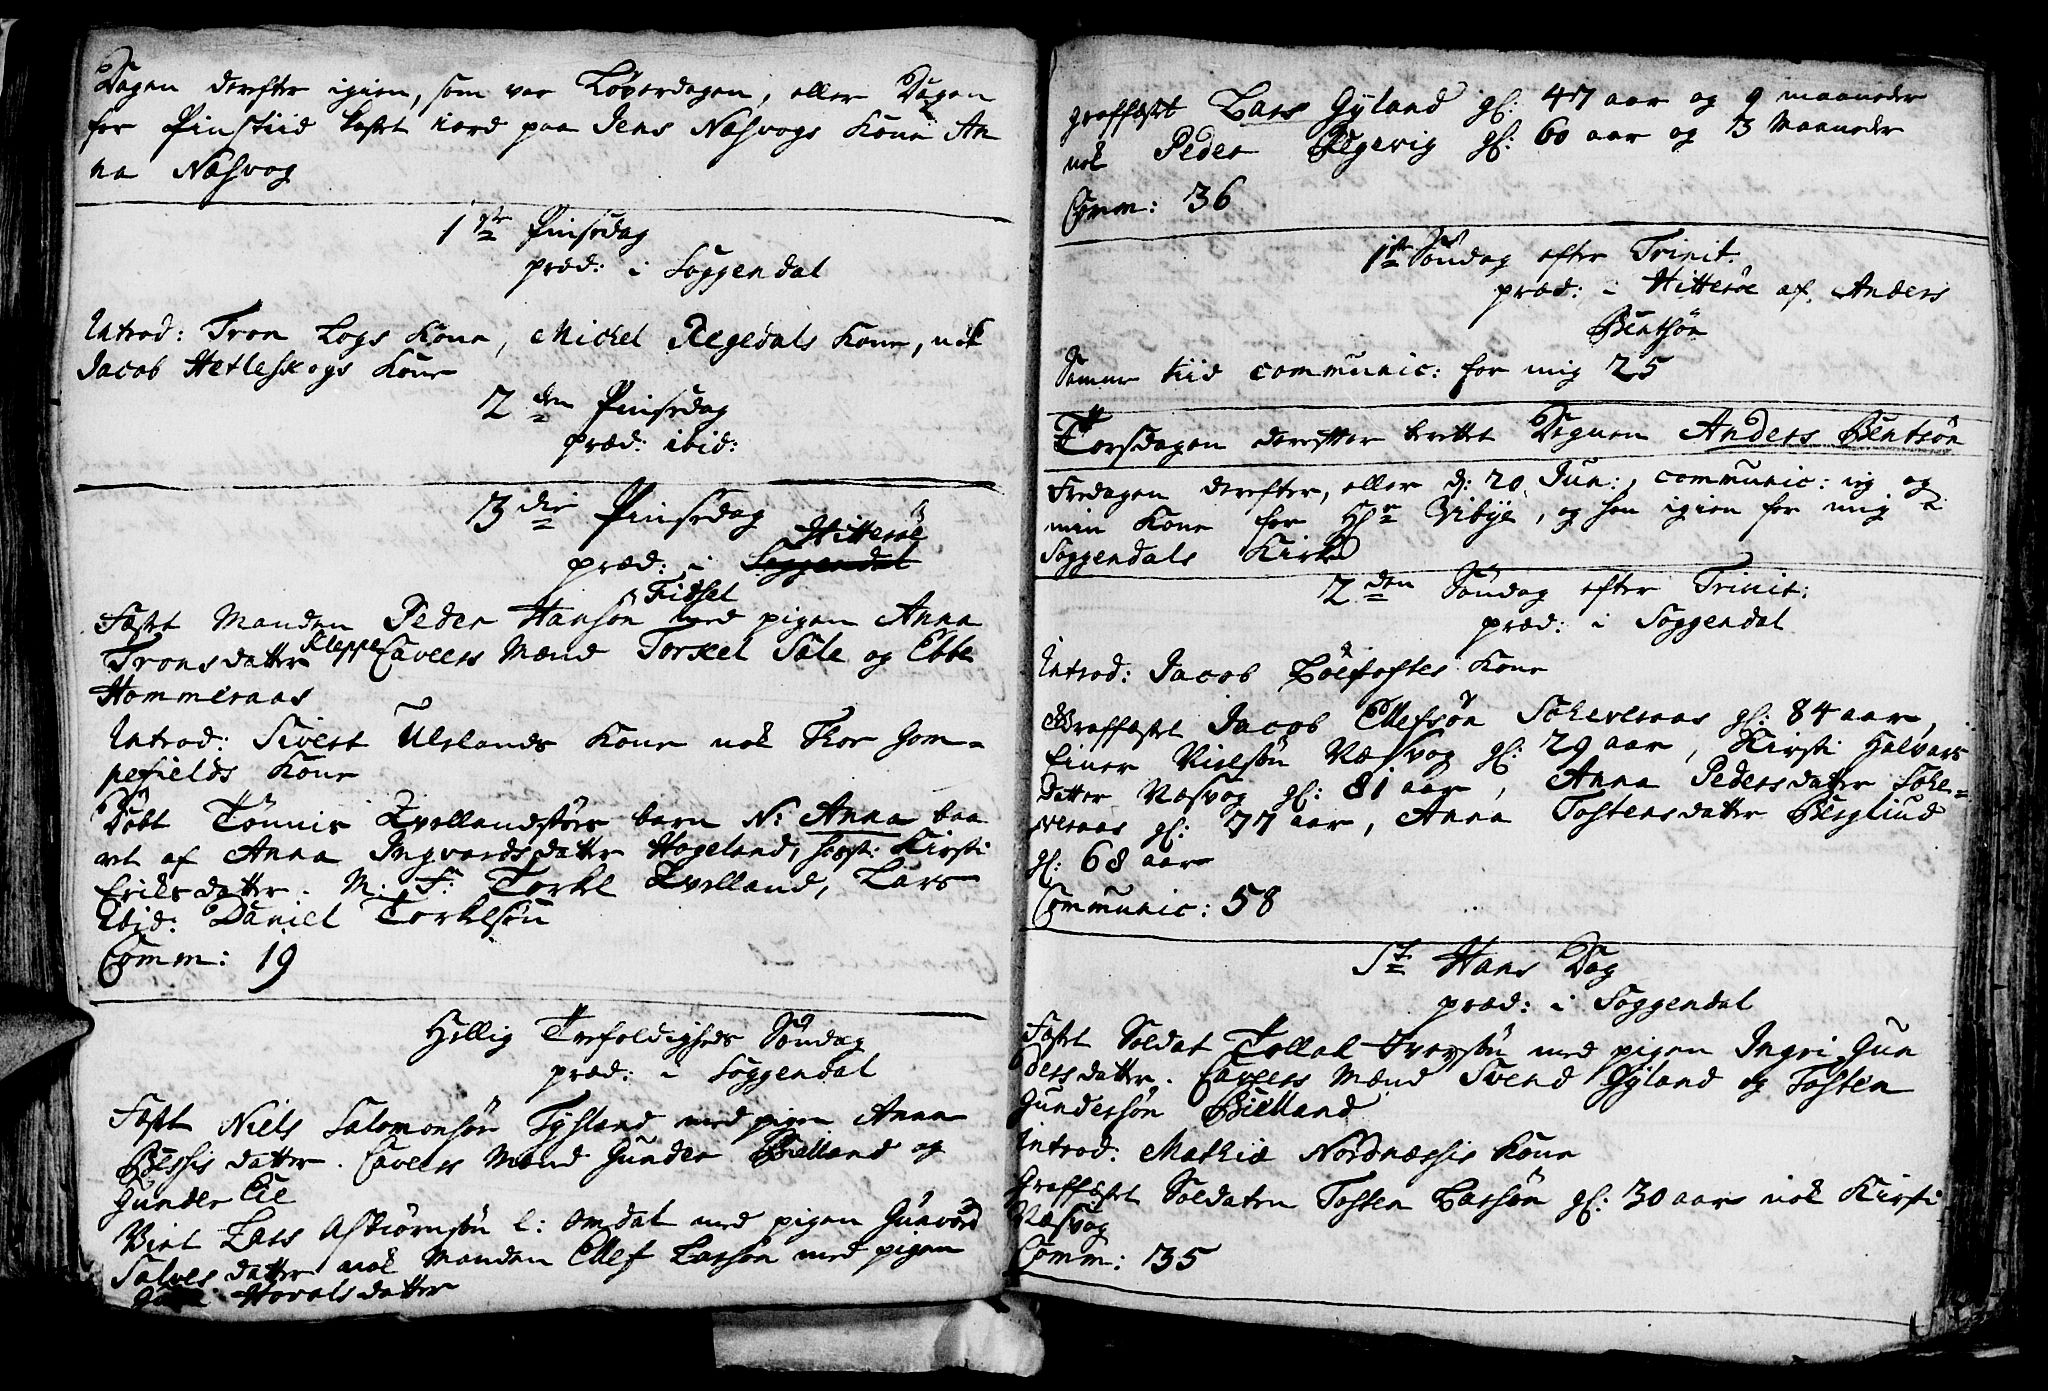 Dagen derefter igien, som var Løverdagen, eller Dagen
for Pinstiid kastet iord paa Jens Næsvogs Kone An
na Næsvog
1ste Pinsedag
præd: i Soggendal
Introd: Tron Logs Kone, Mickel Regedals Kone, nok
Jacob Hetleskogs Kone
2den Pinsedag
præd: ibid:
3die Pinsedag
Hitterøe
præd: i Soggendal
Fidsel
Fæst Manden Peder Hansøn med pigen Anna
Tronsdatter Kleppe Caveers Mænd Torkel Sale og Ebbe
Hommeraas
Introd: Sivert Ulslands Kone nok Thor Gom-
pefields Kone
Døbt Tønnis Qvellandstøes barn N: Anna baa
ret af Anna Ingvardsdatter Hogeland, Kirsti
Eriksdatter. M. F: Torkel Qvelland, Lars
Ibid: Daniel Torkelsøn
Comm: 19
Hellig Trefoldigheds Søndag
præd: i Soggendal
Fæst Niels Salomonsøn Tysland med pigen Anna
Bessisdatter. Caveers Mænd Gunder Bielland og
Gunder Eie
Viet Lars Asbiørnsøn l: Omdal med pigen Gunvord
Salvesdatter nok Manden Ellef Larsøn med pigen
Hovalsdatter
graffæstet Lars Gyland gl: 47 aar og 9 maaneder
nok Peder Regevig gl: 60 aar og 3 Maaneder
Comm: 36
1ste Søndag efter Trinit:
præd: i Hitterøe af Anders
Bentsøn
Samme tiid communic: for mig 25
Torsdagen derefter Degnen Anders Bentsøn
Fredagen derefter, eller d: 20 Jun:, communic: ieg og
min Kone for Hr Vibye, og han igien for mig i
Soggendals Kirke
2den Søndag efter Trinit:
præd: i Soggendal
Introd: Jacob Løetoftes Kone
Graffæstet Jacob Ellefsøn Sokeveraas gl: 84 aar,
Einer Nielsøn Næsvog gl: 29 aar, Kirsti Halvars
datter Næsvog gl: 81 aar, Anna Pedersdatter Soke-
veraas gl: 77 aar, Anna Tostensdatter Berglund
gl: 68 aar
Communic: 58
St Hans Dag
præd: i Soggendal
Fæst Soldat Tollak Iversøn med pigen Ingri Gun
dersdatter. Caveers Mænd Svend Gyland og Tosten
Gundersøn Bielland
Introd: Mathiæ Nordnæssis Kone
Graffæstet Soldaten Tosten Larsøn gl: 30 aar nok Kirsti
Næsvog
Comm: 35